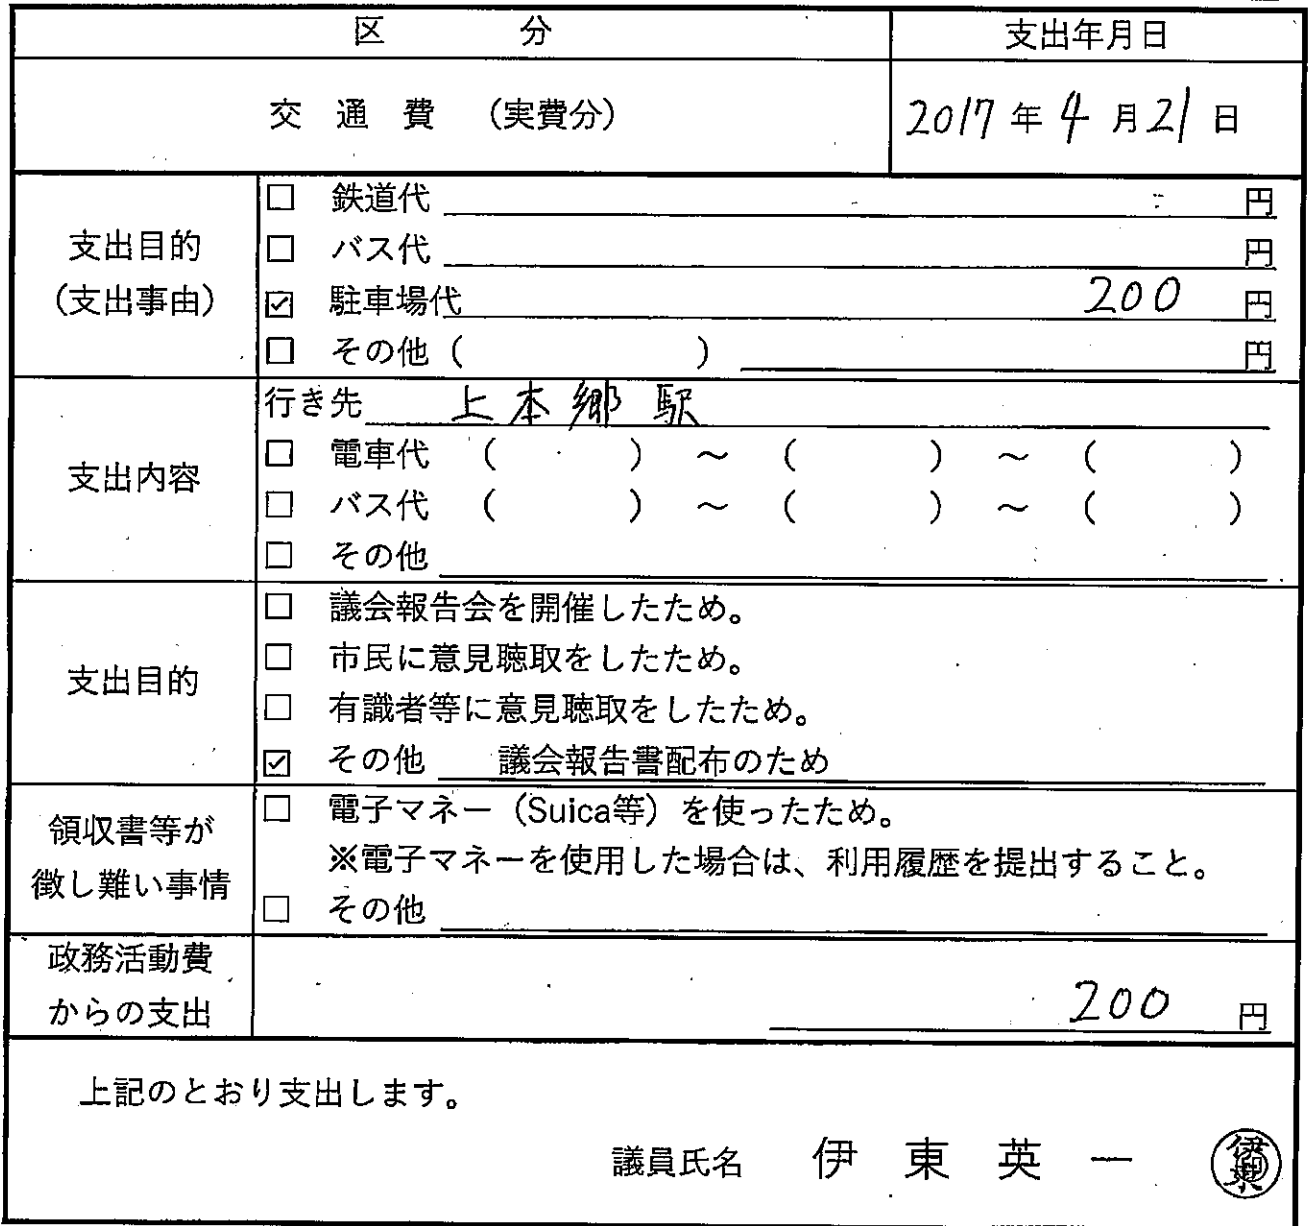 区 分 支出年月日
交 通 費 (実費分) 2017 年 4 月 21 日
支出目的
(支出事由)
□ 鉄道代 円
□ バス代 円
☑ 駐車場代 200 円
□ その他 ( ) 円
支出内容
行き先 上本郷駅
□ 電車代 ( ) ~ ( ) ~ ( )
□ バス代 ( ) ~ ( ) ~ ( )
□ その他
支出目的
□ 議会報告会を開催したため。
□ 市民に意見聴取をしたため。
□ 有識者等に意見聴取をしたため。
☑ その他 議会報告書配布のため
領収書等が
徴し難い事情
□ 電子マネー(Suica等)を使ったため。
※電子マネーを使用した場合は、利用履歴を提出すること。
□ その他
政務活動費
からの支出
200 円
上記のとおり支出します。
議員氏名 伊 東 英 一 伊東